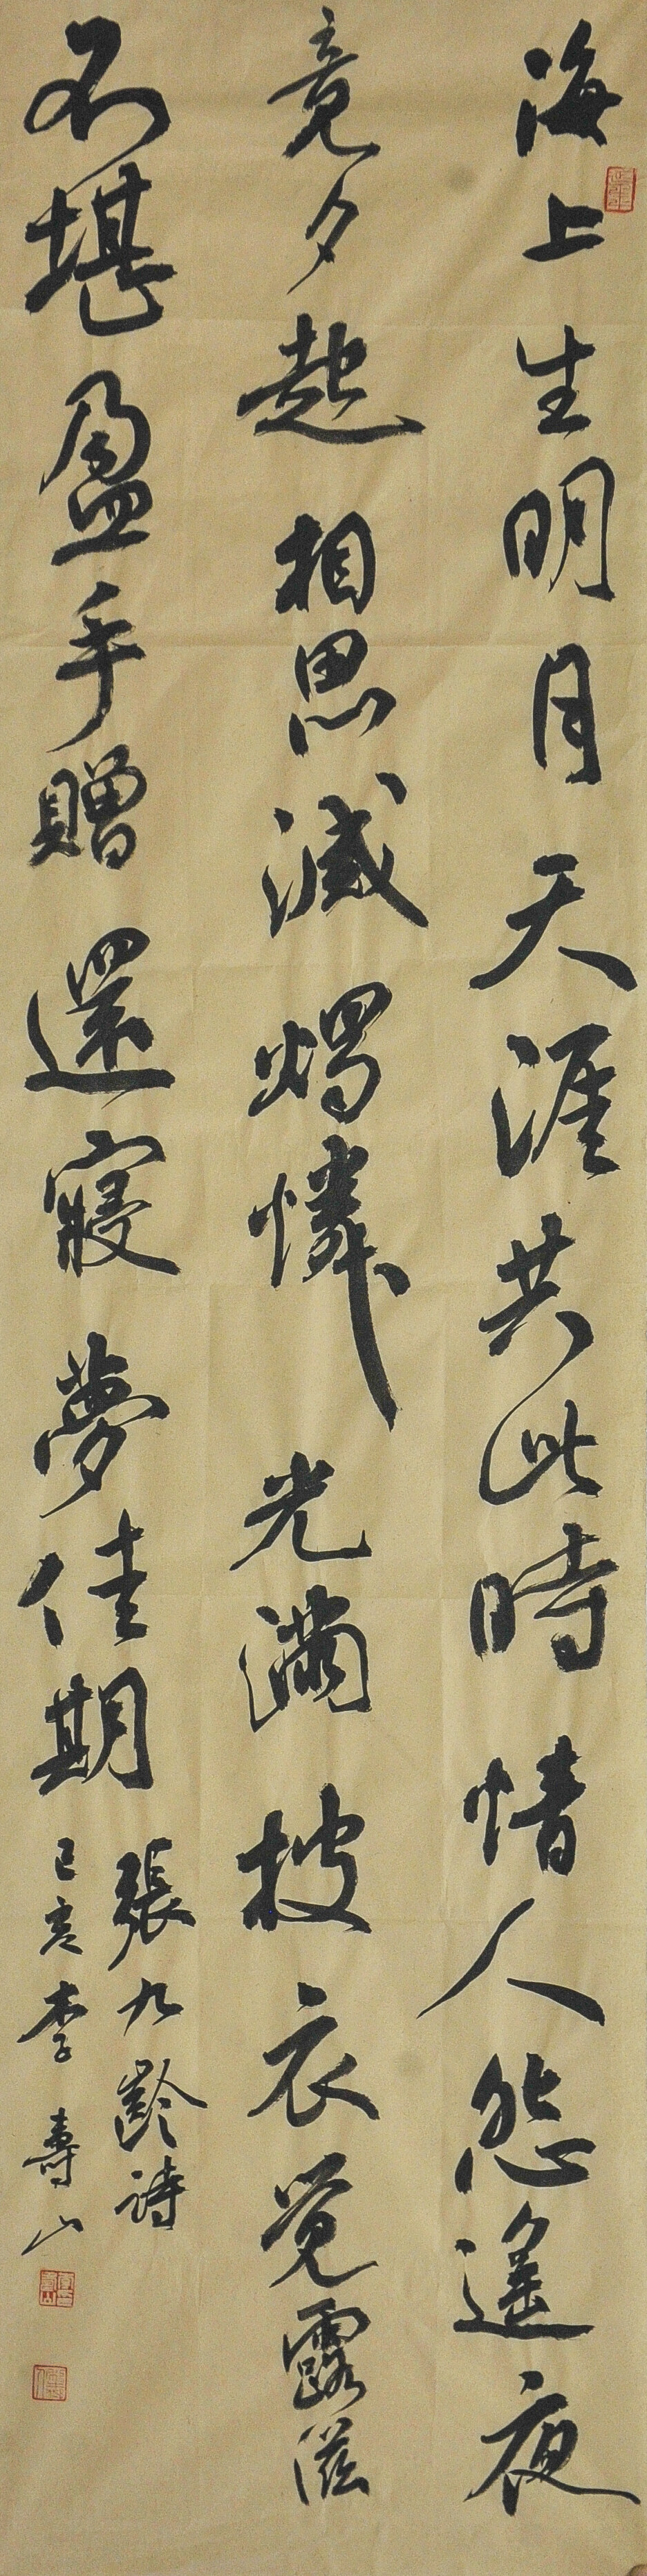 海上生明月天涯共此時情人怨遙夜
竟夕起相思滅燭憐光滿披衣覺露滋
不堪盈手贈還寢夢佳期
張九齡詩
己亥李壽山